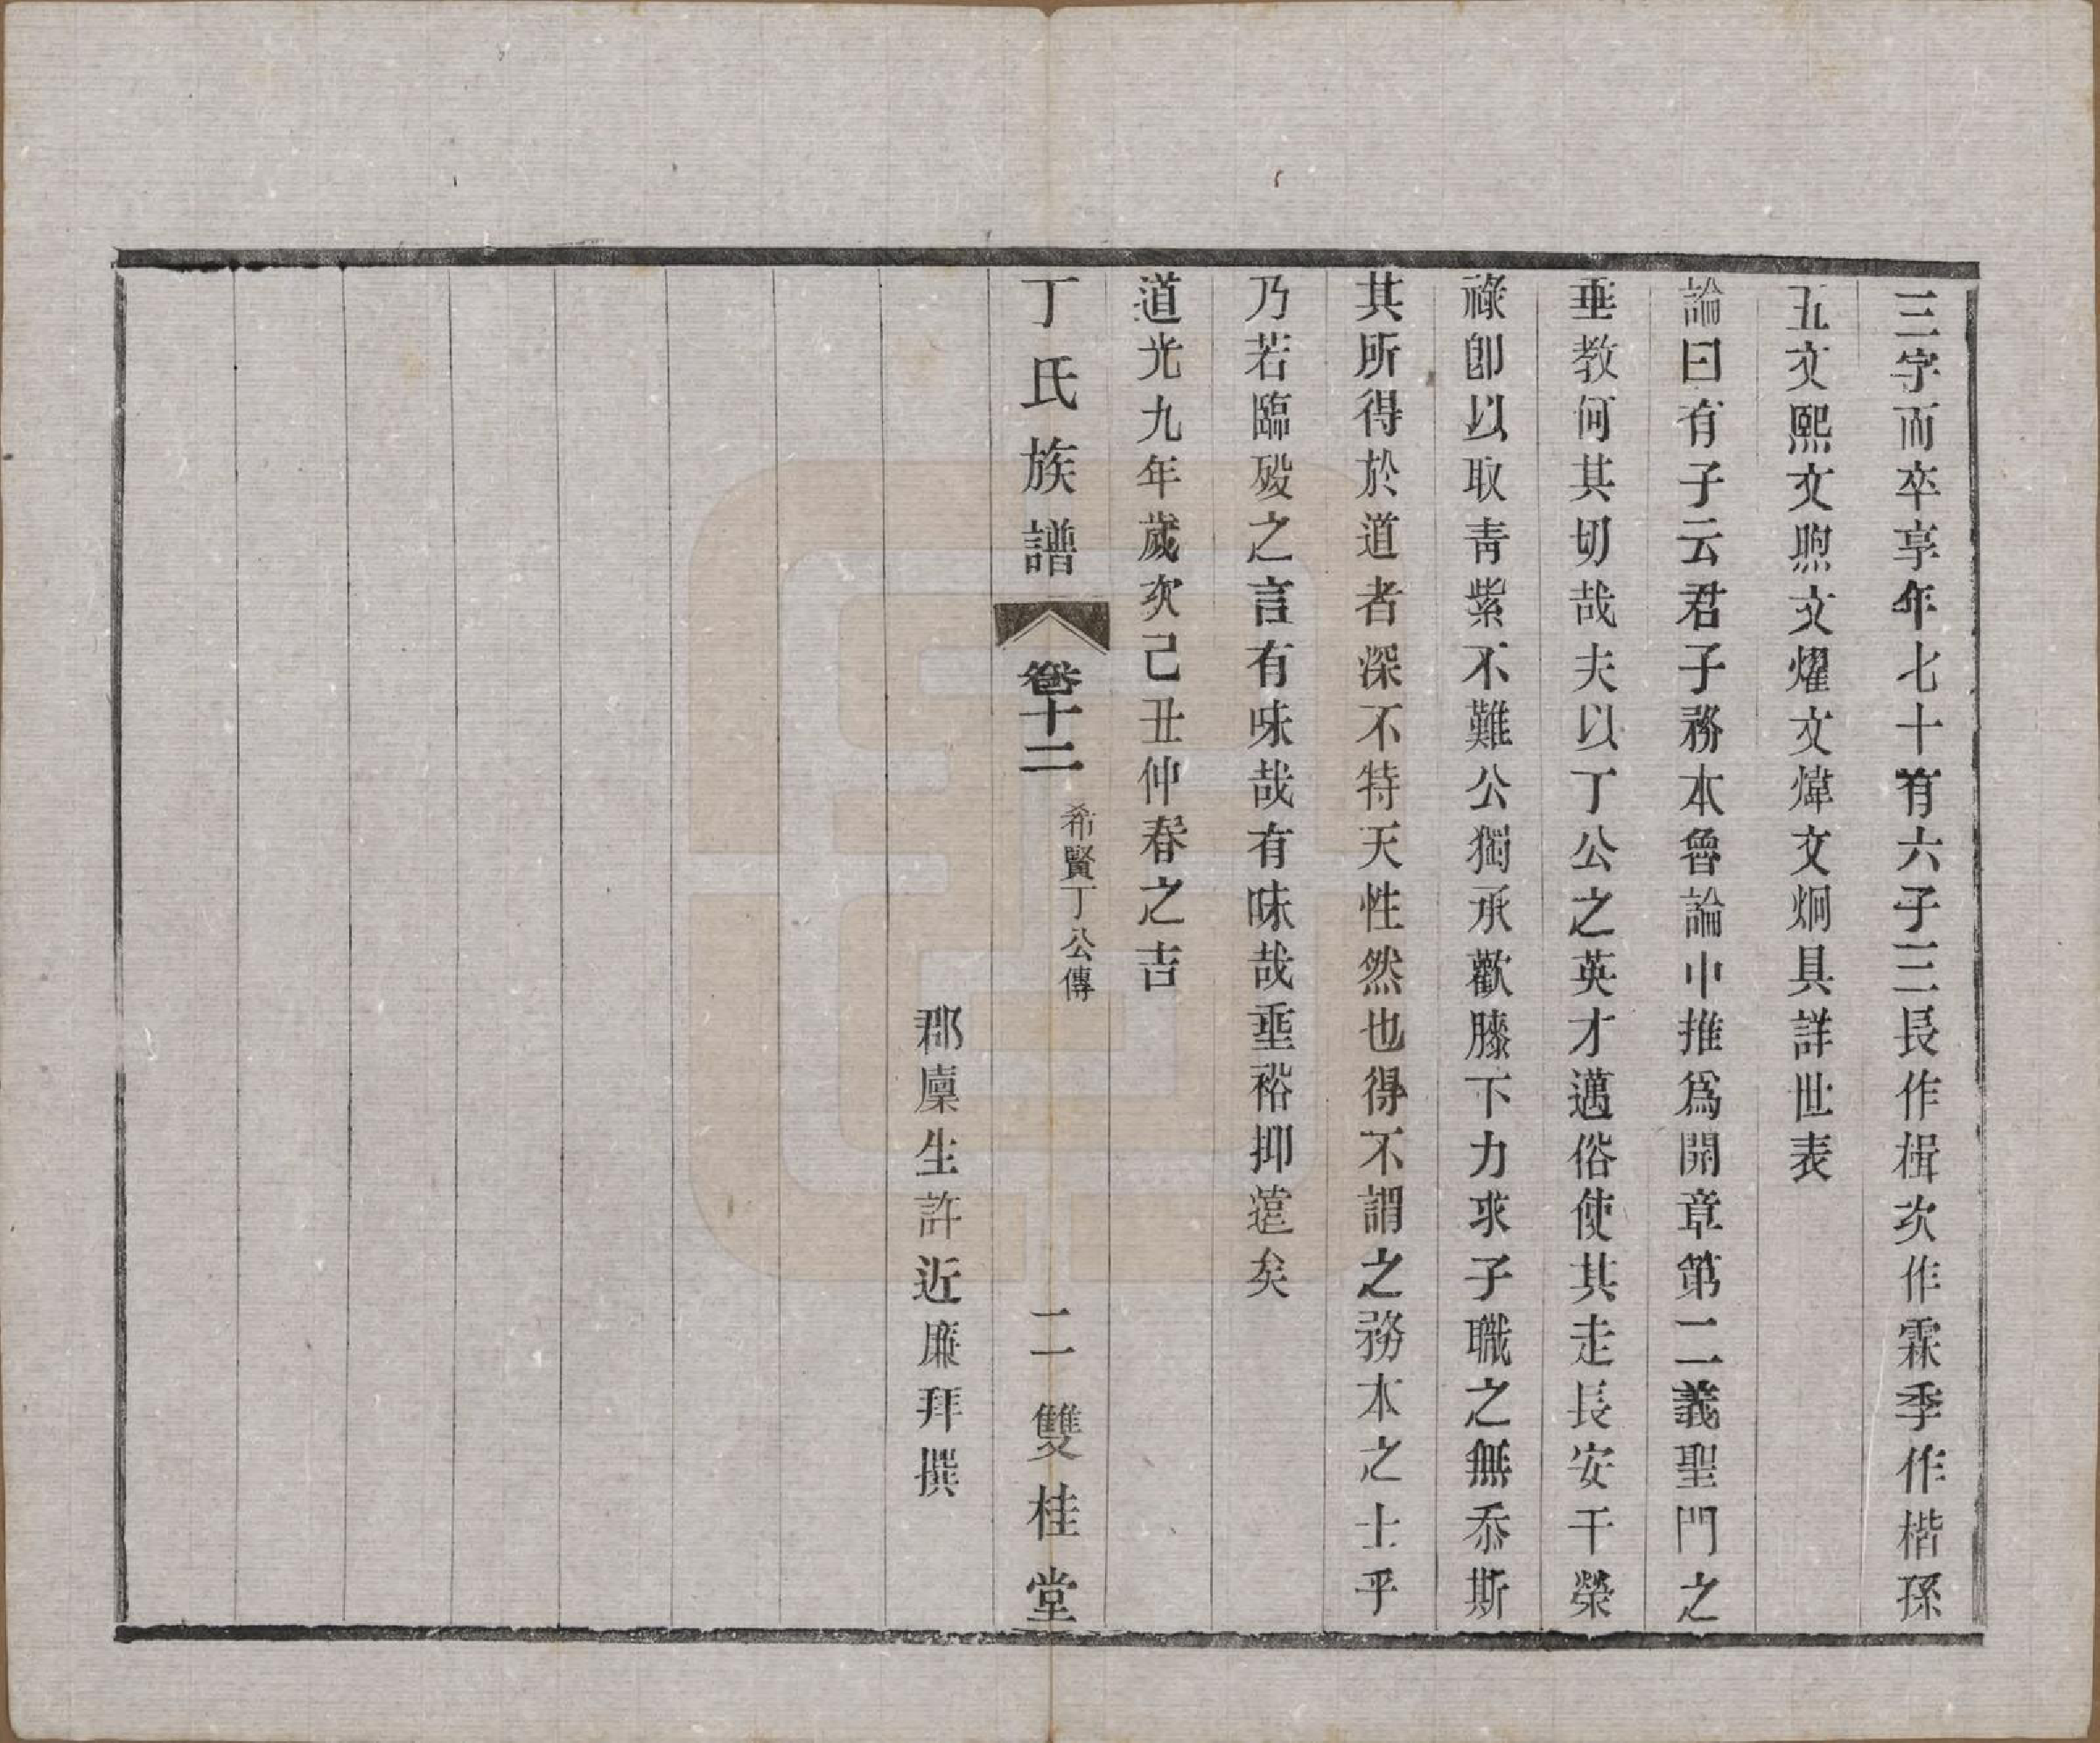 三字而卒享年七十有六子三長作楫次作霖季作楷孫
五文熙文煦文燿文煒文炯具詳世表
論曰有子云君子務本魯論中推爲開章第二義聖門之
垂教何其切哉夫以丁公之英才邁俗使其走長安干榮
祿卽以取靑紫不難公獨承歡膝下力求子職之無忝斯
其所得於道者深不特天性然也得不謂之務本之士乎
乃若臨歿之言有味哉有味哉垂裕抑遠矣
道光九年歲次己丑仲春之吉
丁氏族譜 卷十二 希賢丁公傳 二 雙桂堂
郡廩生許近廉拜撰